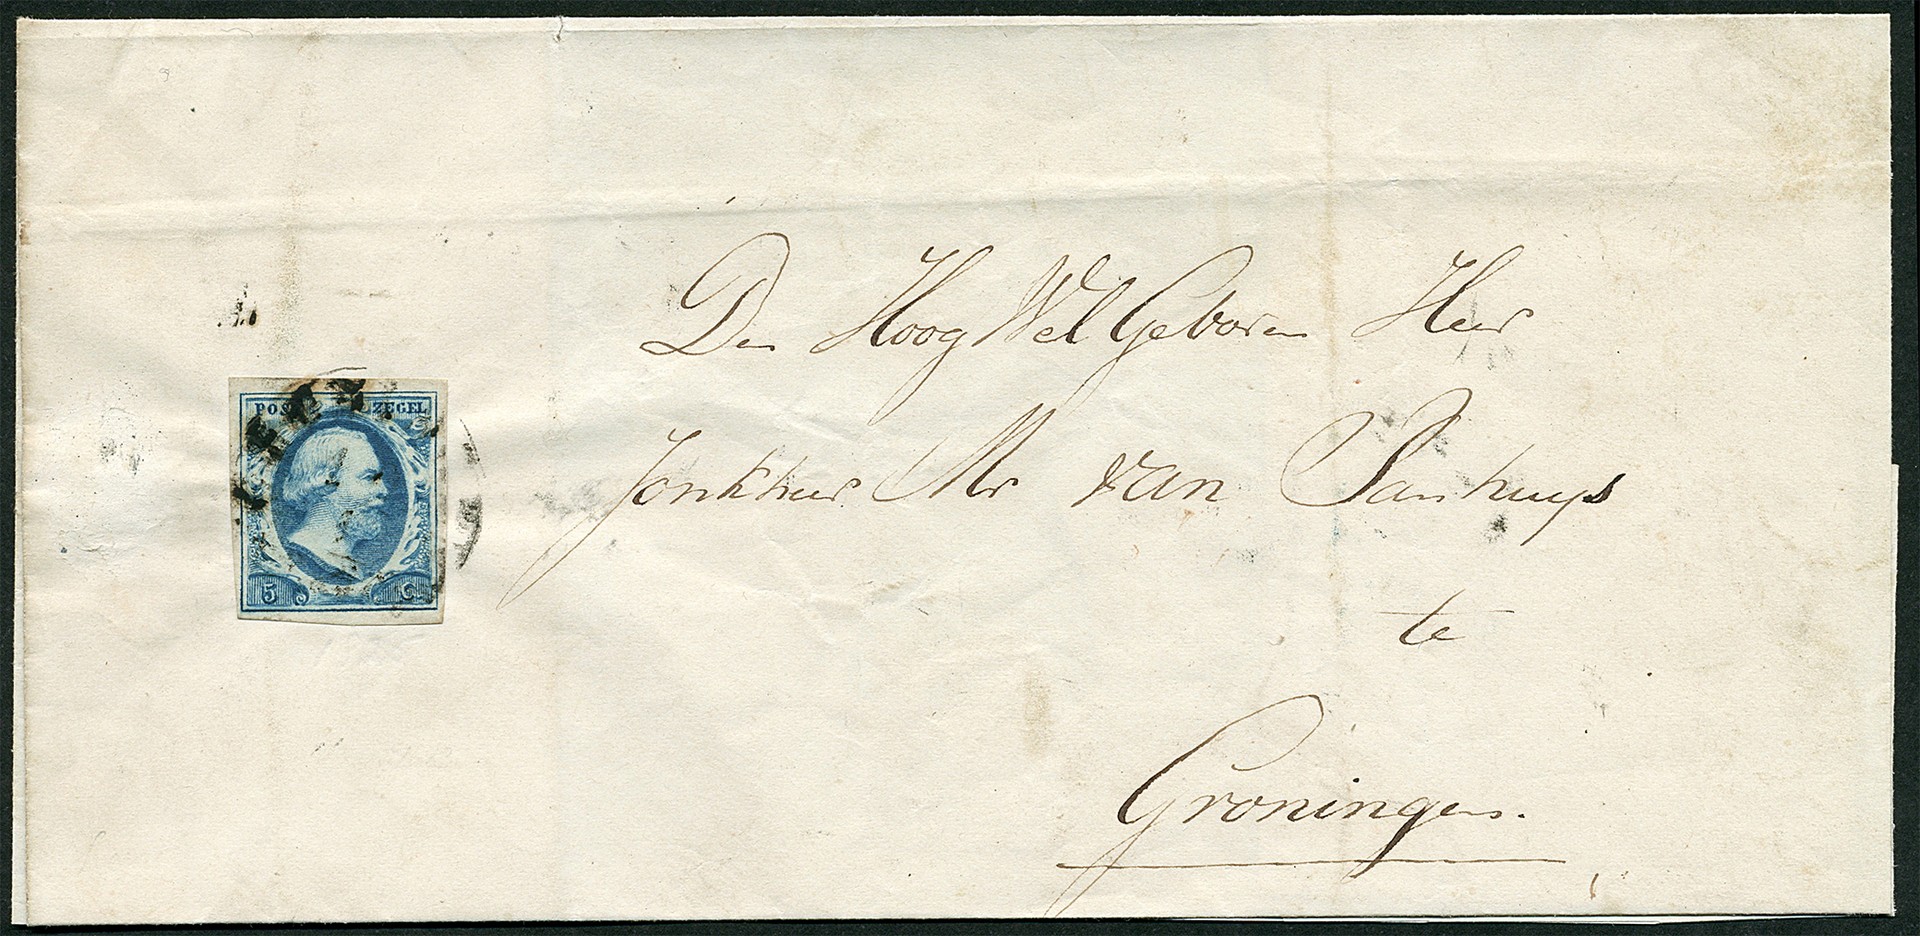 POST ZEGEL
5 C
Den HoogWelGeboren Heer
Jonkheer Mr van Panhuys
te
Groningen.